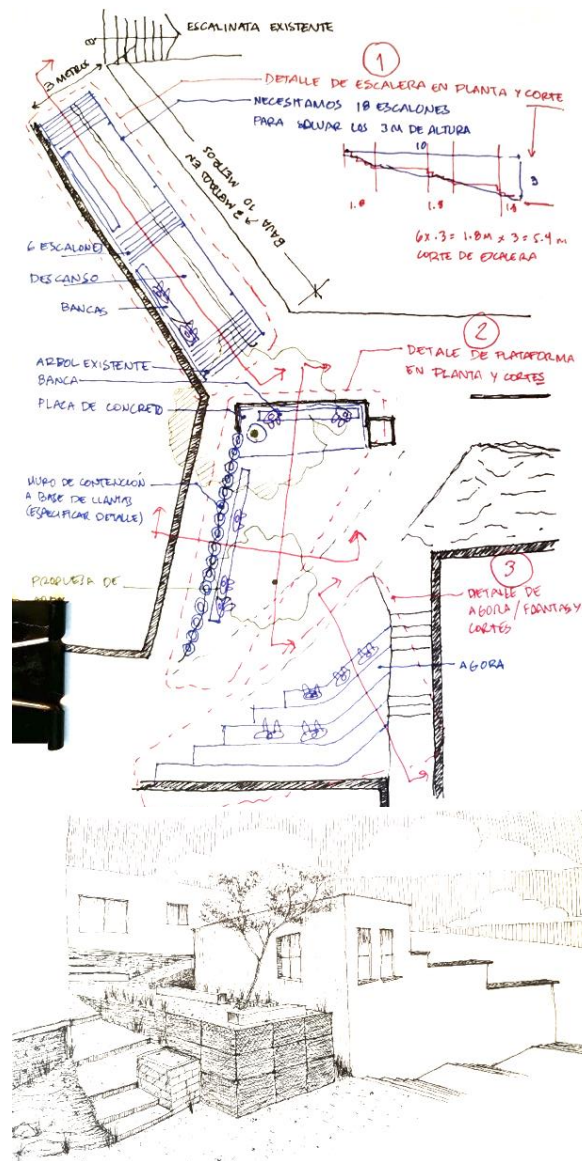 ESCALINATA EXISTENTE
3 METROS
1
DETALLE DE ESCALERA EN PLANTA Y CORTE
NECESITAMOS 18 ESCALONES
PARA SALVAR LOS 3 M DE ALTURA
10
3
1.8
1.8
1.8
6x.3 = 1.8M x 3 = 5.4 M
CORTE DE ESCALERA
BAJA 3 METROS EN
10 METROS
6 ESCALONES
DESCANSO
BANCAS
2
DETALE DE PLATAFORMA
EN PLANTA Y CORTES
ARBOL EXISTENTE
BANCA
PLACA DE CONCRETO
MURO DE CONTENCIÓN
A BASE DE LLANTAS
(ESPECIFICAR DETALLE)
PROPUESTA DE
3
DETALLE DE
AGORA / PLANTAS Y
CORTES
AGORA